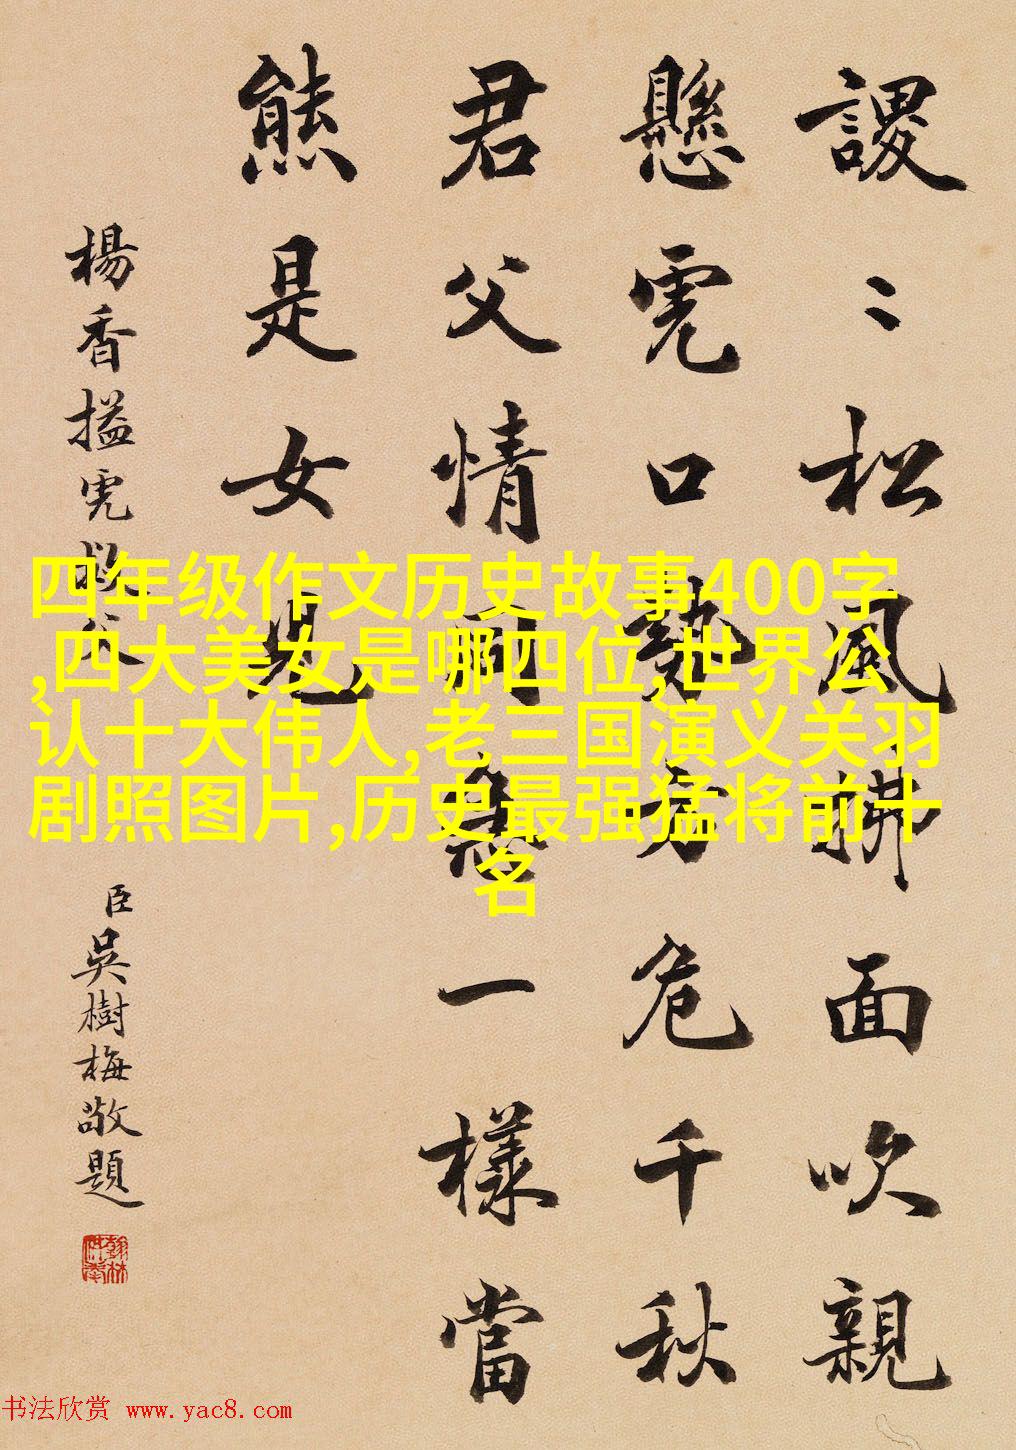 謖〻松風拂面吹親
懸虎口勢方危千秋
君父情同急一樣當
熊是女兒
楊香搤虎救父
臣吳樹梅敬題
四年级作文历史故事400字
,四大美女是哪四位,世界公
认十大伟人,老三国演义关羽
剧照图片,历史最强猛将前十
名
书法欣赏 www.yac8.com